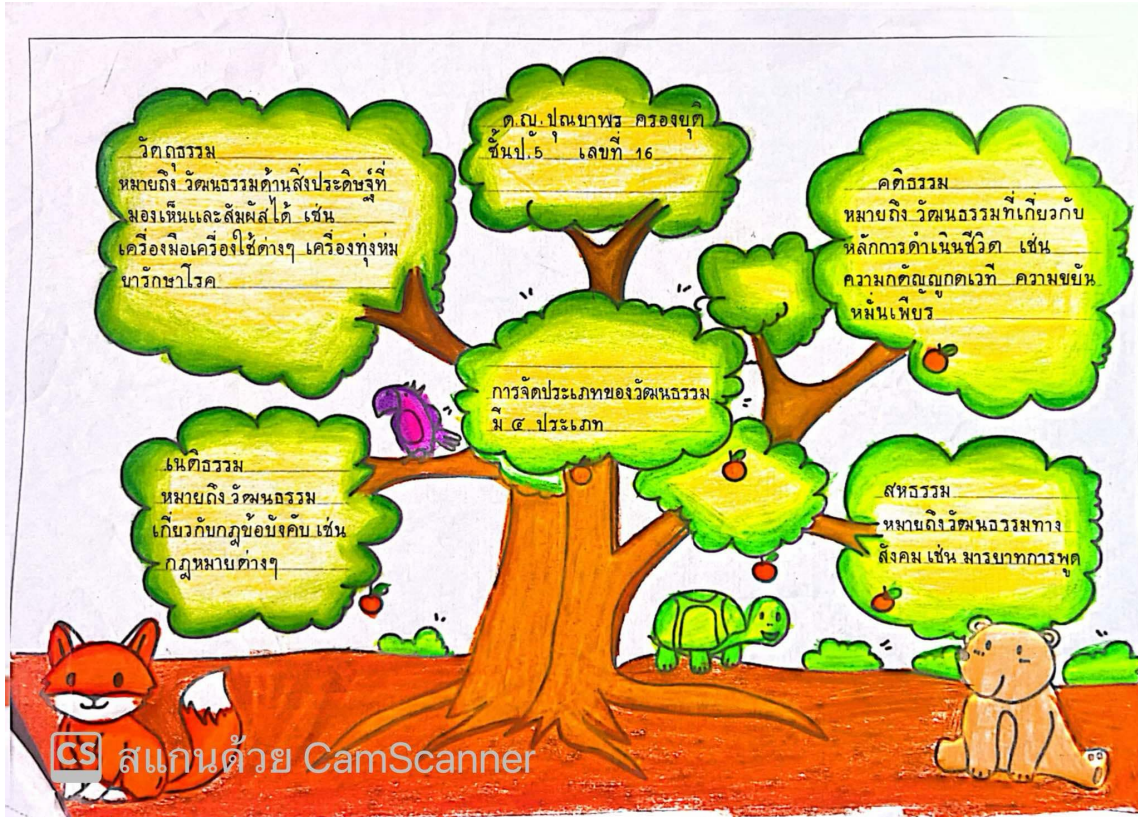 ด.ญ.ปุณยาพร ครองยุติ
ชั้นป.5 เลขที่ 16
วัตถุธรรม
หมายถึง วัฒนธรรมด้านสิ่งประดิษฐ์ที่
มองเห็นและสัมผัสได้ เช่น
เครื่องมือเครื่องใช้ต่างๆ เครื่องทุ่งห่ม
ยารักษาโรค
คติธรรม
หมายถึง วัฒนธรรมที่เกี่ยวกับ
หลักการดำเนินชีวิต เช่น
ความกตัญญูกตเวที ความขยัน
หมั่นเพียร
การจัดประเภทของวัฒนธรรม
มี ๔ ประเภท
เนติธรรม
หมายถึง วัฒนธรรม
เกี่ยวกับกฎข้อบังคับ เช่น
กฎหมายต่างๆ
สหธรรม
หมายถึงวัฒนธรรมทาง
สังคม เช่น มารยาทการพูด
CS สแกนด้วย CamScanner